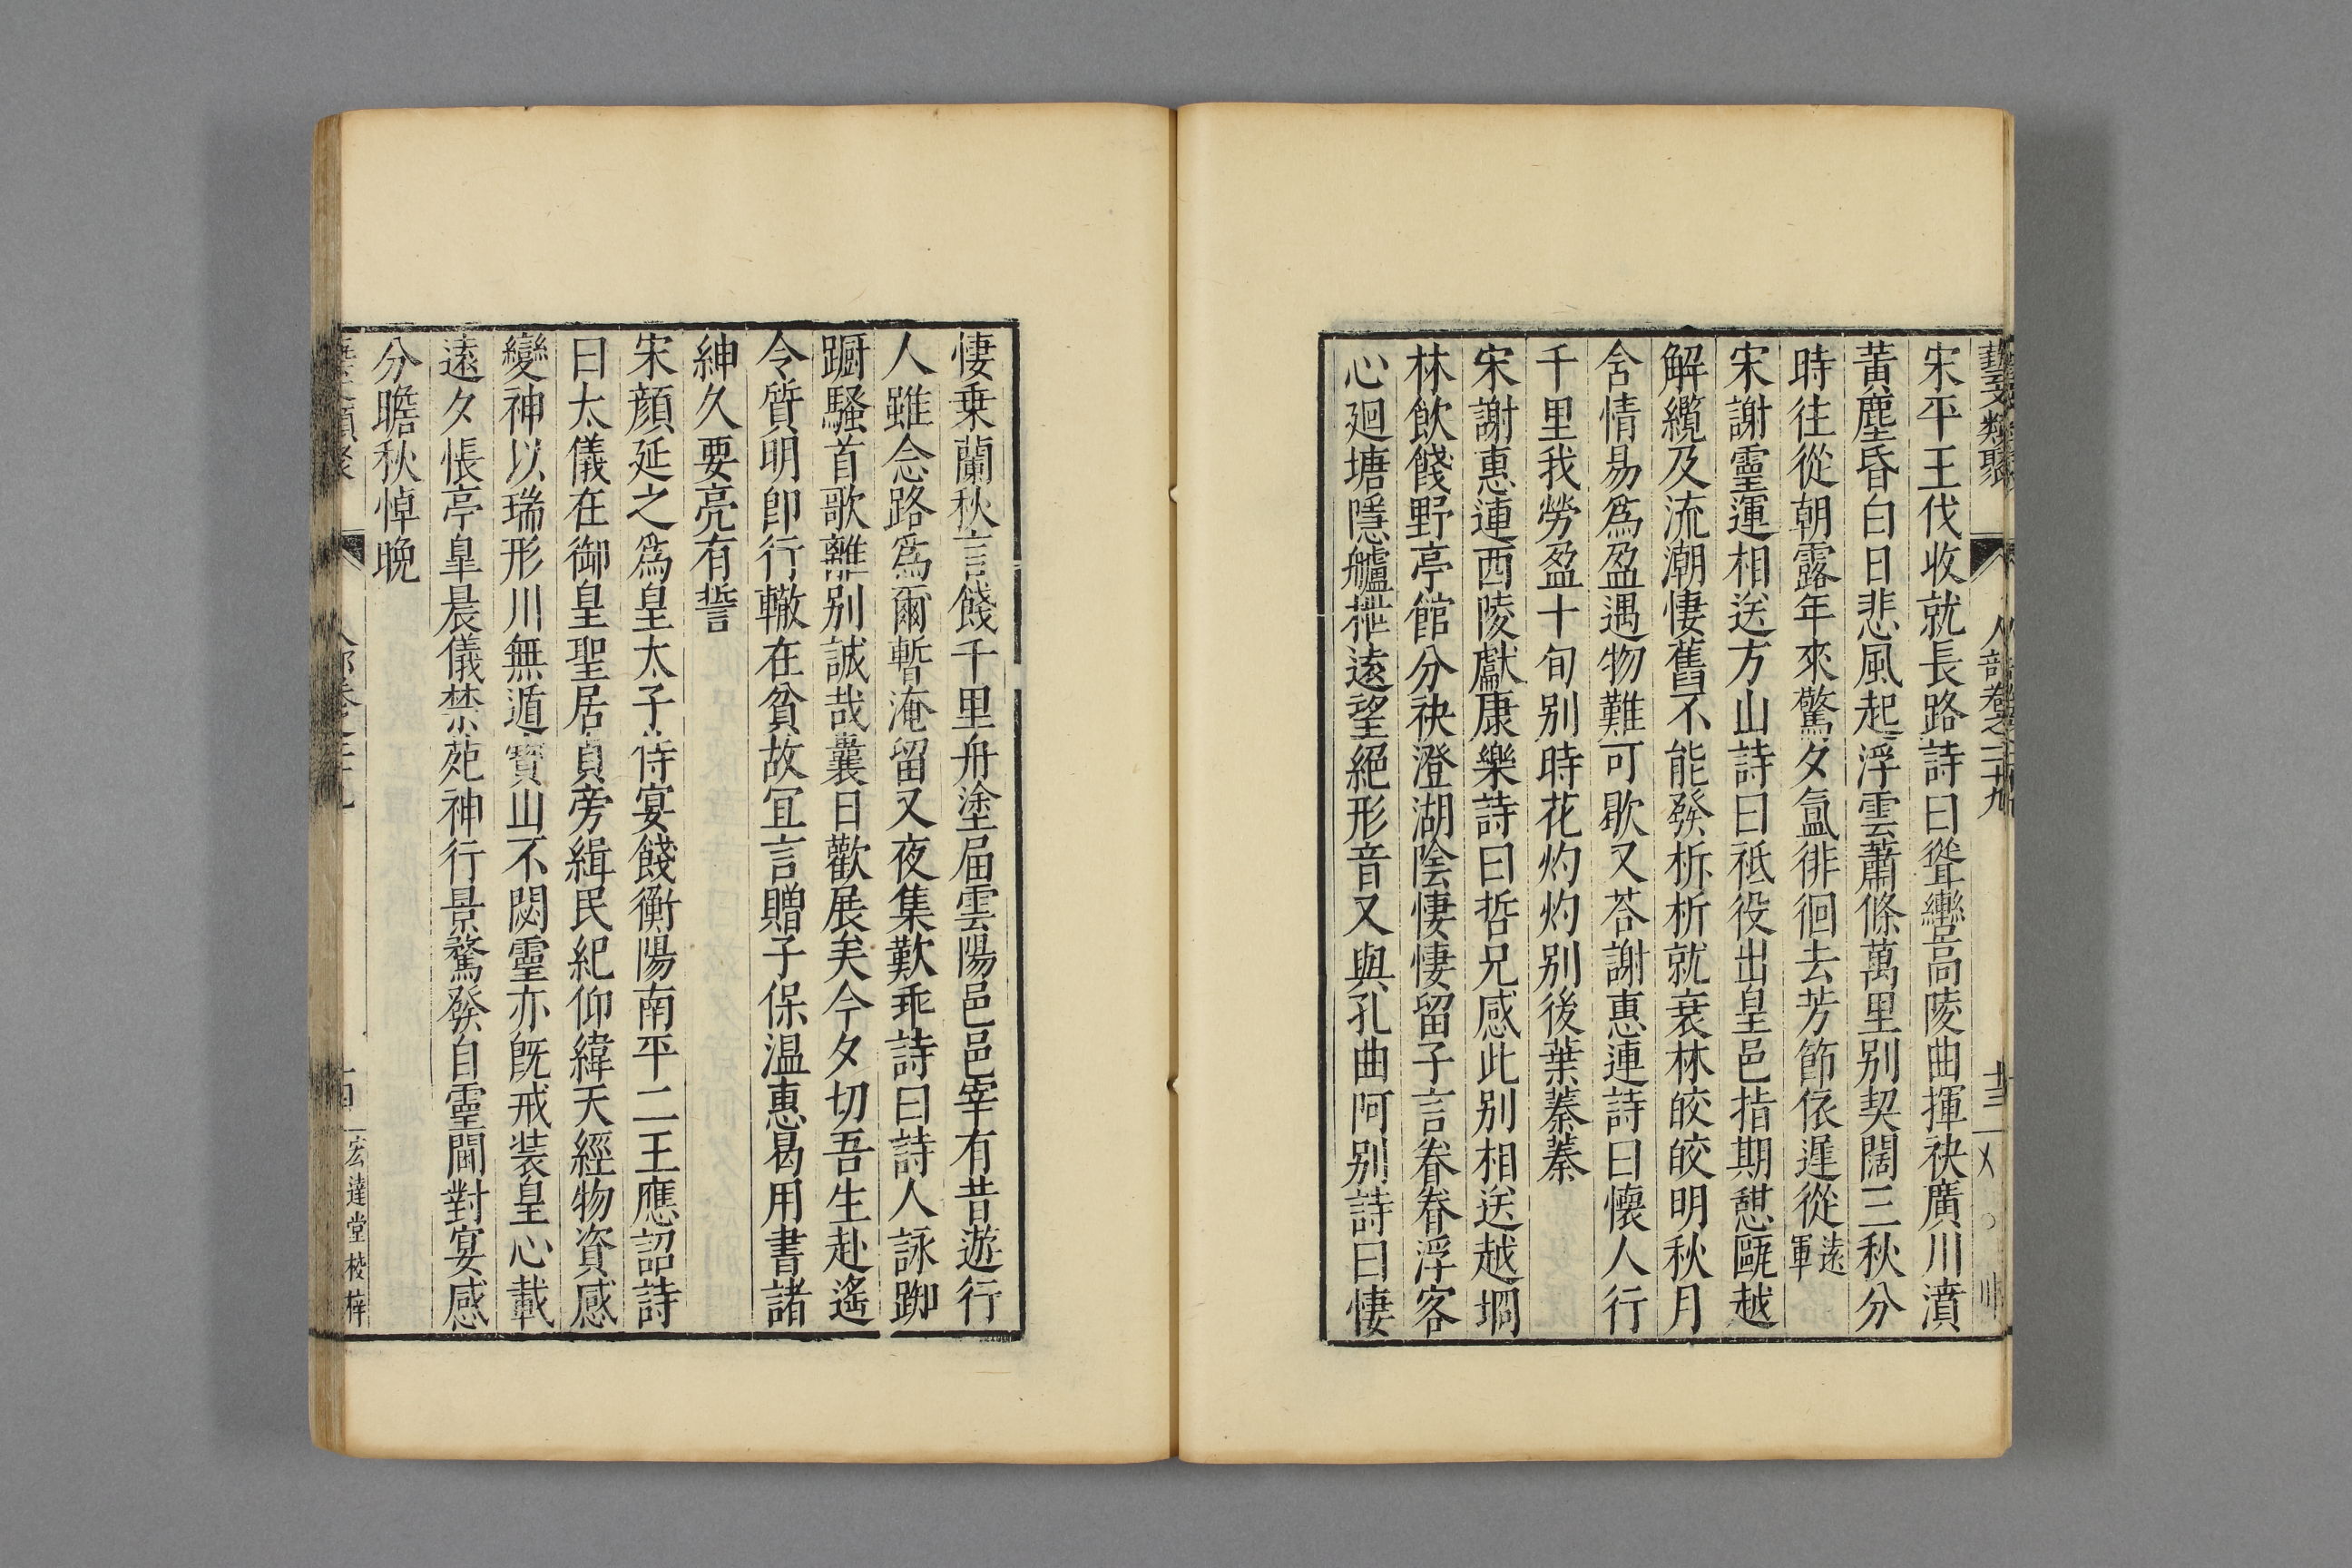 藝文類聚 人部卷之二十九 十三
宋平王伐收就長路詩曰聳轡高陵曲揮袂廣川濆
黃塵昏白日悲風起浮雲蕭條萬里別契闊三秋分
時往從朝露年來驚夕氳徘徊去芳節依遲從遠軍
宋謝靈運相送方山詩曰祗役出皇邑指期憇甌越
解纜及流潮悽舊不能發析析就衰林皎皎明秋月
含情易為盈遇物難可歇又荅謝惠連詩曰懷人行
千里我勞盈十旬別時花灼灼別後葉蓁蓁
宋謝惠連西陵獻康樂詩曰哲兄感此別相送越坰
林飲餞野亭館分袂澄湖陰悽悽留子言眷眷浮客
心廻塘隱艫栧遠望絕形音又與孔曲阿別詩曰悽
悽乗蘭秋言餞千里舟塗屆雲陽邑邑宰有昔遊行
人雖念路為爾暫淹留又夜集歎乖詩曰詩人詠踟
蹰騷首歌離別誠哉曩日歡展矣今夕切吾生赴遙
令質明卽行轍在貧故冝言贈子保温惠曷用書諸
紳久要亮有誓
宋顏延之為皇太子侍宴餞衡陽南平二王應詔詩
曰太儀在御皇聖居貞旁緝民紀仰緯天經物資感
變神以瑞形川無遁寶山不閟靈亦旣戒装皇心載
遠夕悵亭臯晨儀禁苑神行景騖發自靈閫對宴感
分瞻秋悼晚
類聚 宏達堂校梓